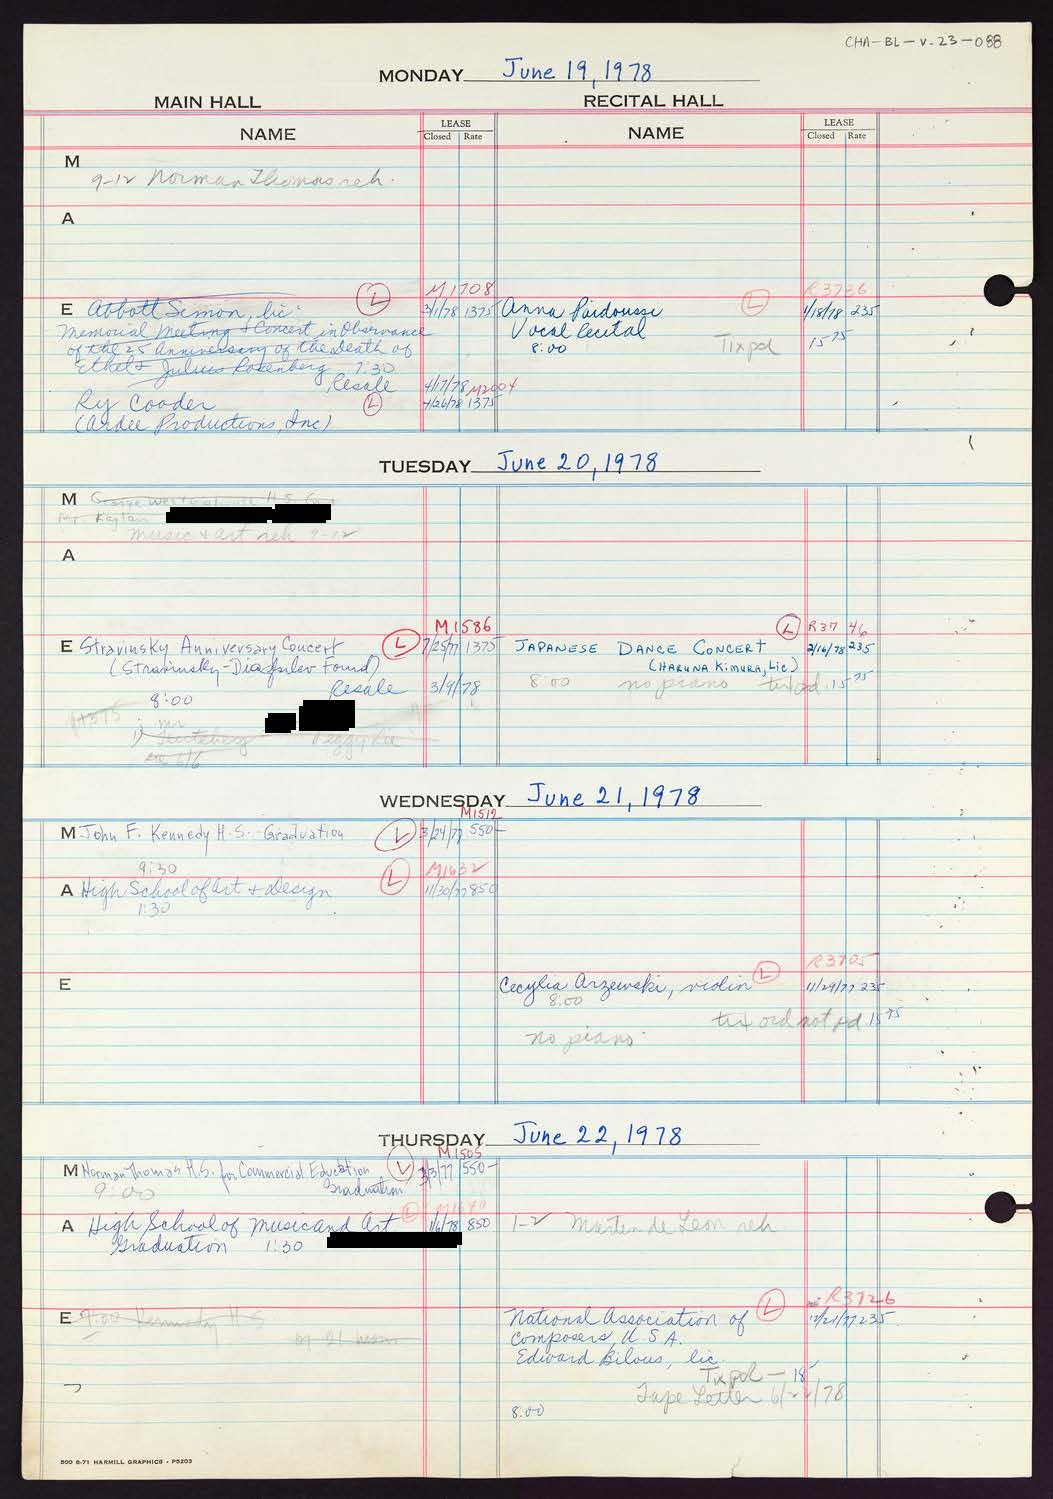 CHA-BL-v.23-088
MONDAY June 19, 1978
MAIN HALL RECITAL HALL
NAME LEASE Closed Rate NAME LEASE Closed Rate
M
9-12 Norman Thomas reh.
A
M1708 R3736
E Abbott Simon, lic. L 3/1/78 1375 Anna Paidoussi L 1/18/78 235
Memorial Meeting + Concert in Observance Vocal Recital
of the 25 Anniversary of the Death of 8:00 Tix pd 15 75
Ethel + Julius Rosenberg 7:30
Resale 4/17/78 M2004
Ry Cooder L 4/26/78 1375
(Ardee Productions, Inc)
TUESDAY June 20, 1978
M George Westinghouse H.S.
Mr. Kaplan
music & art reh 9-12
A
M1586 R3746
E Stravinsky Anniversary Concert L 7/25/77 1375 JAPANESE DANCE CONCERT L 2/16/78 235
(Stravinsky-Diaghilev Found) (HARUNA KIMURA, Lic)
Resale 3/9/78 8:00 no piano tix pd. 15 75
8:00
mr
Peggy
6/6
WEDNESDAY June 21, 1978
M1512
M John F. Kennedy H.S. Graduation L 3/24/77 550-
9:30 M1632
A High School of Art + Design L 11/30/77 850
1:30
R3705
E Cecylia Arzewski, violin L 11/29/77 235
8:00
tix ord not pd 15 75
no piano
THURSDAY June 22, 1978
M1505
M Norman Thomas H.S. for Commercial Education L 3/3/77 550-
9:00 Graduation
L M1640
A High School of Music and Art 1/6/78 850 1-2 Marten de Leon reh.
Graduation 1:30
R3726
E 9:00 Kennedy H.S National Association of L 12/21/77 235
on 21 Composers, U S A.
Edward Bilous, lic.
Tix pd - 18
Tape Letter 6/22/78
8:00
500 8-71 HARMILL GRAPHICS - P5203